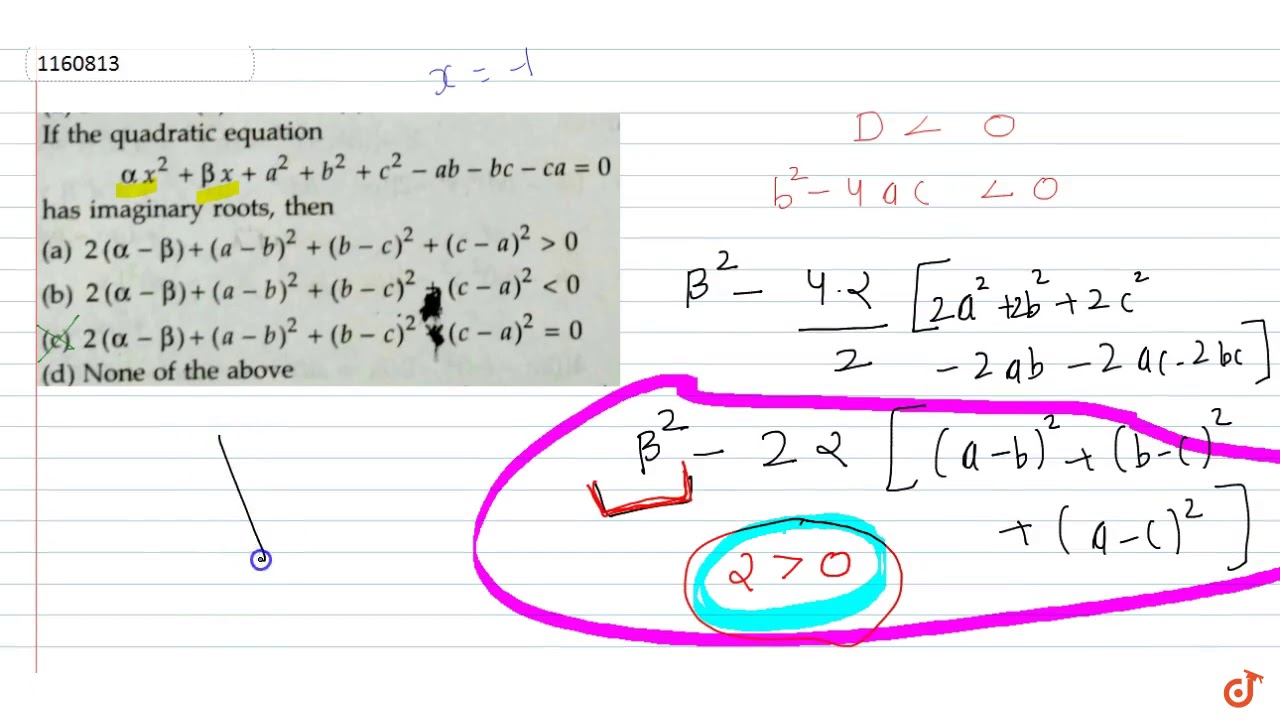 1160813
x = -1
If the quadratic equation
αx² + βx + a² + b² + c² − ab − bc − ca = 0
has imaginary roots, then
(a) 2(α − β) + (a − b)² + (b − c)² + (c − a)² > 0
(b) 2(α − β) + (a − b)² + (b − c)² + (c − a)² < 0
(c) 2(α − β) + (a − b)² + (b − c)² (c − a)² = 0
(d) None of the above
D < 0
b² − 4ac < 0
β² − 4·α/2 [2a² + 2b² + 2c²
− 2ab − 2ac − 2bc]
β² − 2α [(a−b)² + (b−c)²
+ (a−c)²]
α > 0